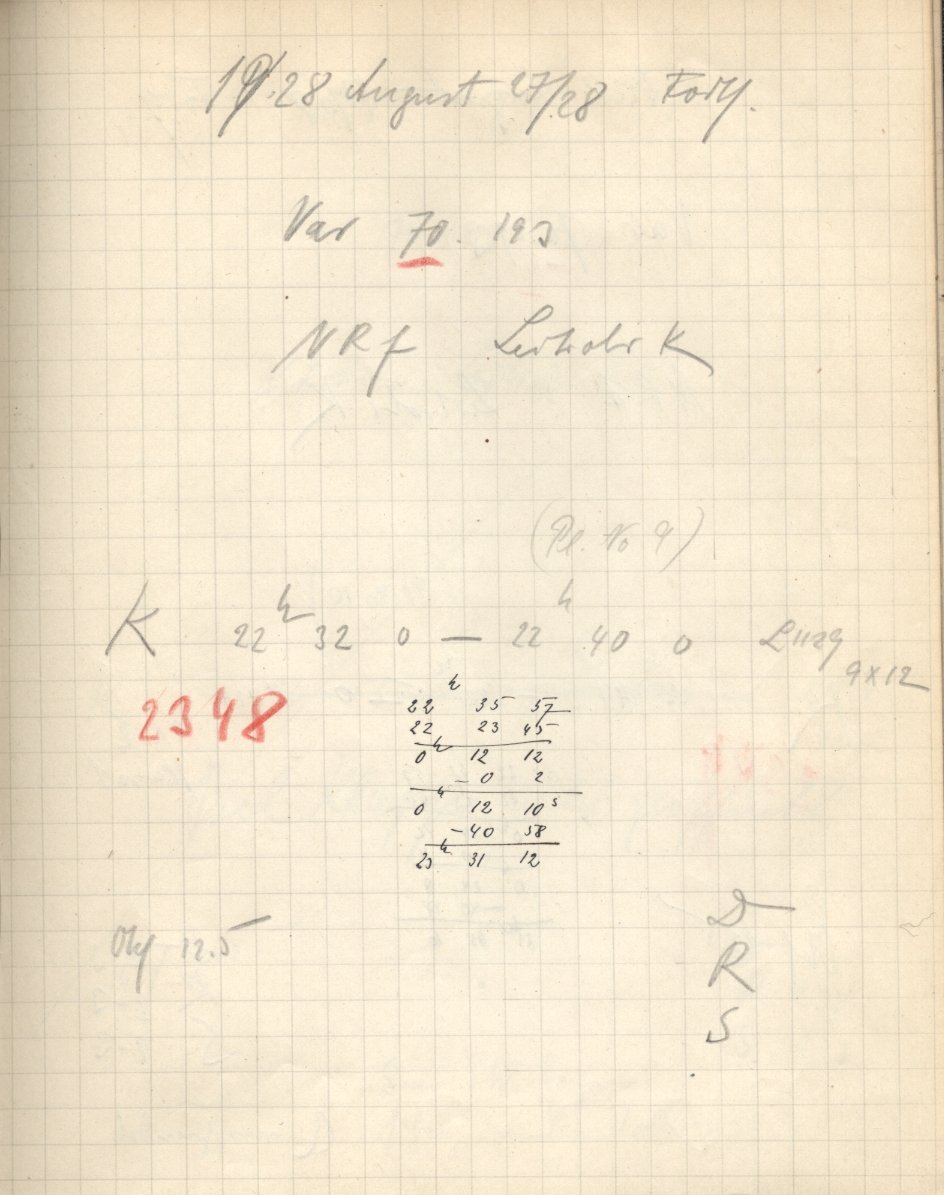 1928 August 27/28 Forts.
Var 70. 193
NRf K
(Pl. No 9)
K 22h 32 0 — 22h 40 0
9x12
2348
22h 35 57
22 23 45
0h 12 12
- 0 2
0h 12 10s
-40 58
23h 31 12
D
Obj 12.5
R
S